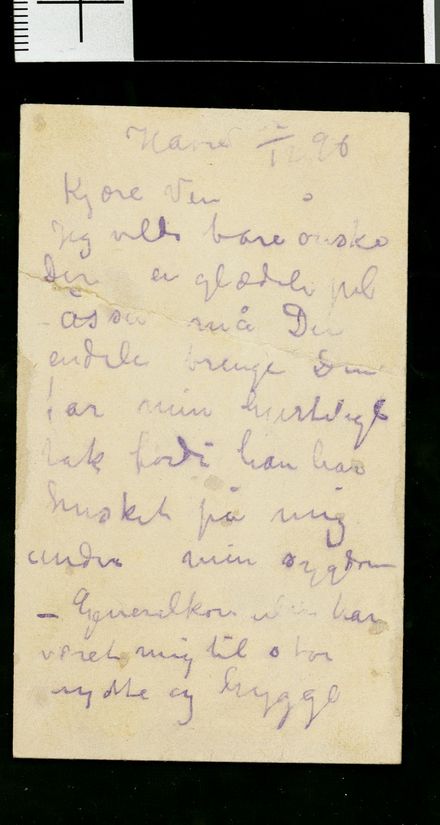 Havre 12 96
Kjære Ven
Jeg vilde bare ønske
Dig en glædeli jul
- åsså må Du
endeli brenge Din
far min hjerteligste
tak fordi han har
husket på mig
under min sygdom
- Generalkonsulen har
været mig til stor
nytte og hygge